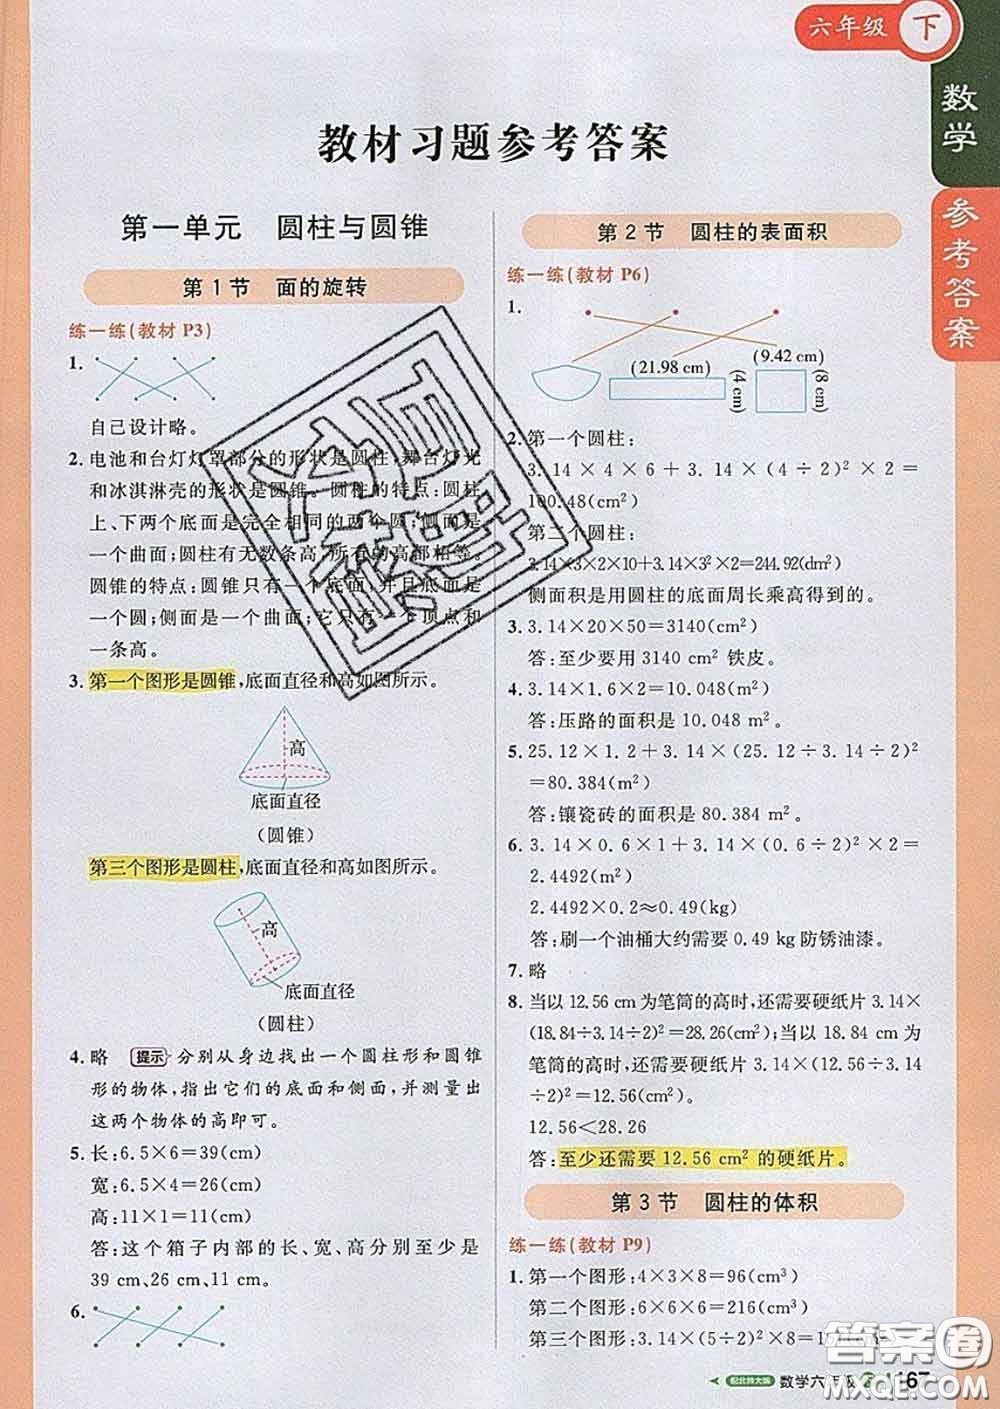 六年级 下
数学
参考答案
教材习题参考答案
第一单元 圆柱与圆锥
第1节 面的旋转
练一练(教材 P3)
1.
自己设计略。
2. 电池和台灯灯罩部分的形状是圆柱,舞台灯光
和冰淇淋壳的形状是圆锥。圆柱的特点:圆柱
上、下两个底面是完全相同的两个圆;侧面是
一个曲面;圆柱有无数条高,所有的高都相等。
圆锥的特点:圆锥只有一个底面,并且底面是
一个圆;侧面是一个曲面;它只有一个顶点和
一条高。
3. 第一个图形是圆锥,底面直径和高如图所示。
高
底面直径
(圆锥)
第三个图形是圆柱,底面直径和高如图所示。
高
底面直径
(圆柱)
4. 略 提示:分别从身边找出一个圆柱形和圆锥
形的物体,指出它们的底面和侧面,并测量出
这两个物体的高即可。
5. 长:6.5×6=39(cm)
宽:6.5×4=26(cm)
高:11×1=11(cm)
答:这个箱子内部的长、宽、高分别至少是
39 cm,26 cm,11 cm。
6.
第2节 圆柱的表面积
练一练(教材 P6)
1.
(21.98 cm)
(4 cm)
(9.42 cm)
(8 cm)
2. 第一个圆柱:
3.14×4×6+3.14×(4÷2)²×2=
100.48(cm²)
第二个圆柱:
3.14×3×2×10+3.14×3²×2=244.92(dm²)
侧面积是用圆柱的底面周长乘高得到的。
3. 3.14×20×50=3140(cm²)
答:至少要用 3140 cm² 铁皮。
4. 3.14×1.6×2=10.048(m²)
答:压路的面积是 10.048 m²。
5. 25.12×1.2+3.14×(25.12÷3.14÷2)²
=80.384(m²)
答:镶瓷砖的面积是 80.384 m²。
6. 3.14×0.6×1+3.14×(0.6÷2)²×2=
2.4492(m²)
2.4492×0.2≈0.49(kg)
答:刷一个油桶大约需要 0.49 kg 防锈油漆。
7. 略
8. 当以 12.56 cm 为笔筒的高时,还需要硬纸片 3.14×
(18.84÷3.14÷2)²=28.26(cm²);当以 18.84 cm 为
笔筒的高时,还需要硬纸片 3.14×(12.56÷3.14
÷2)²=12.56(cm²)
12.56<28.26
答:至少还需要 12.56 cm² 的硬纸片。
第3节 圆柱的体积
练一练(教材 P9)
1. 第一个图形:4×3×8=96(cm³)
第二个图形:6×6×6=216(cm³)
第三个图形:3.14×(5÷2)²×8=
配北师大版 数学六年级 167
答案圈
MXQE.COM